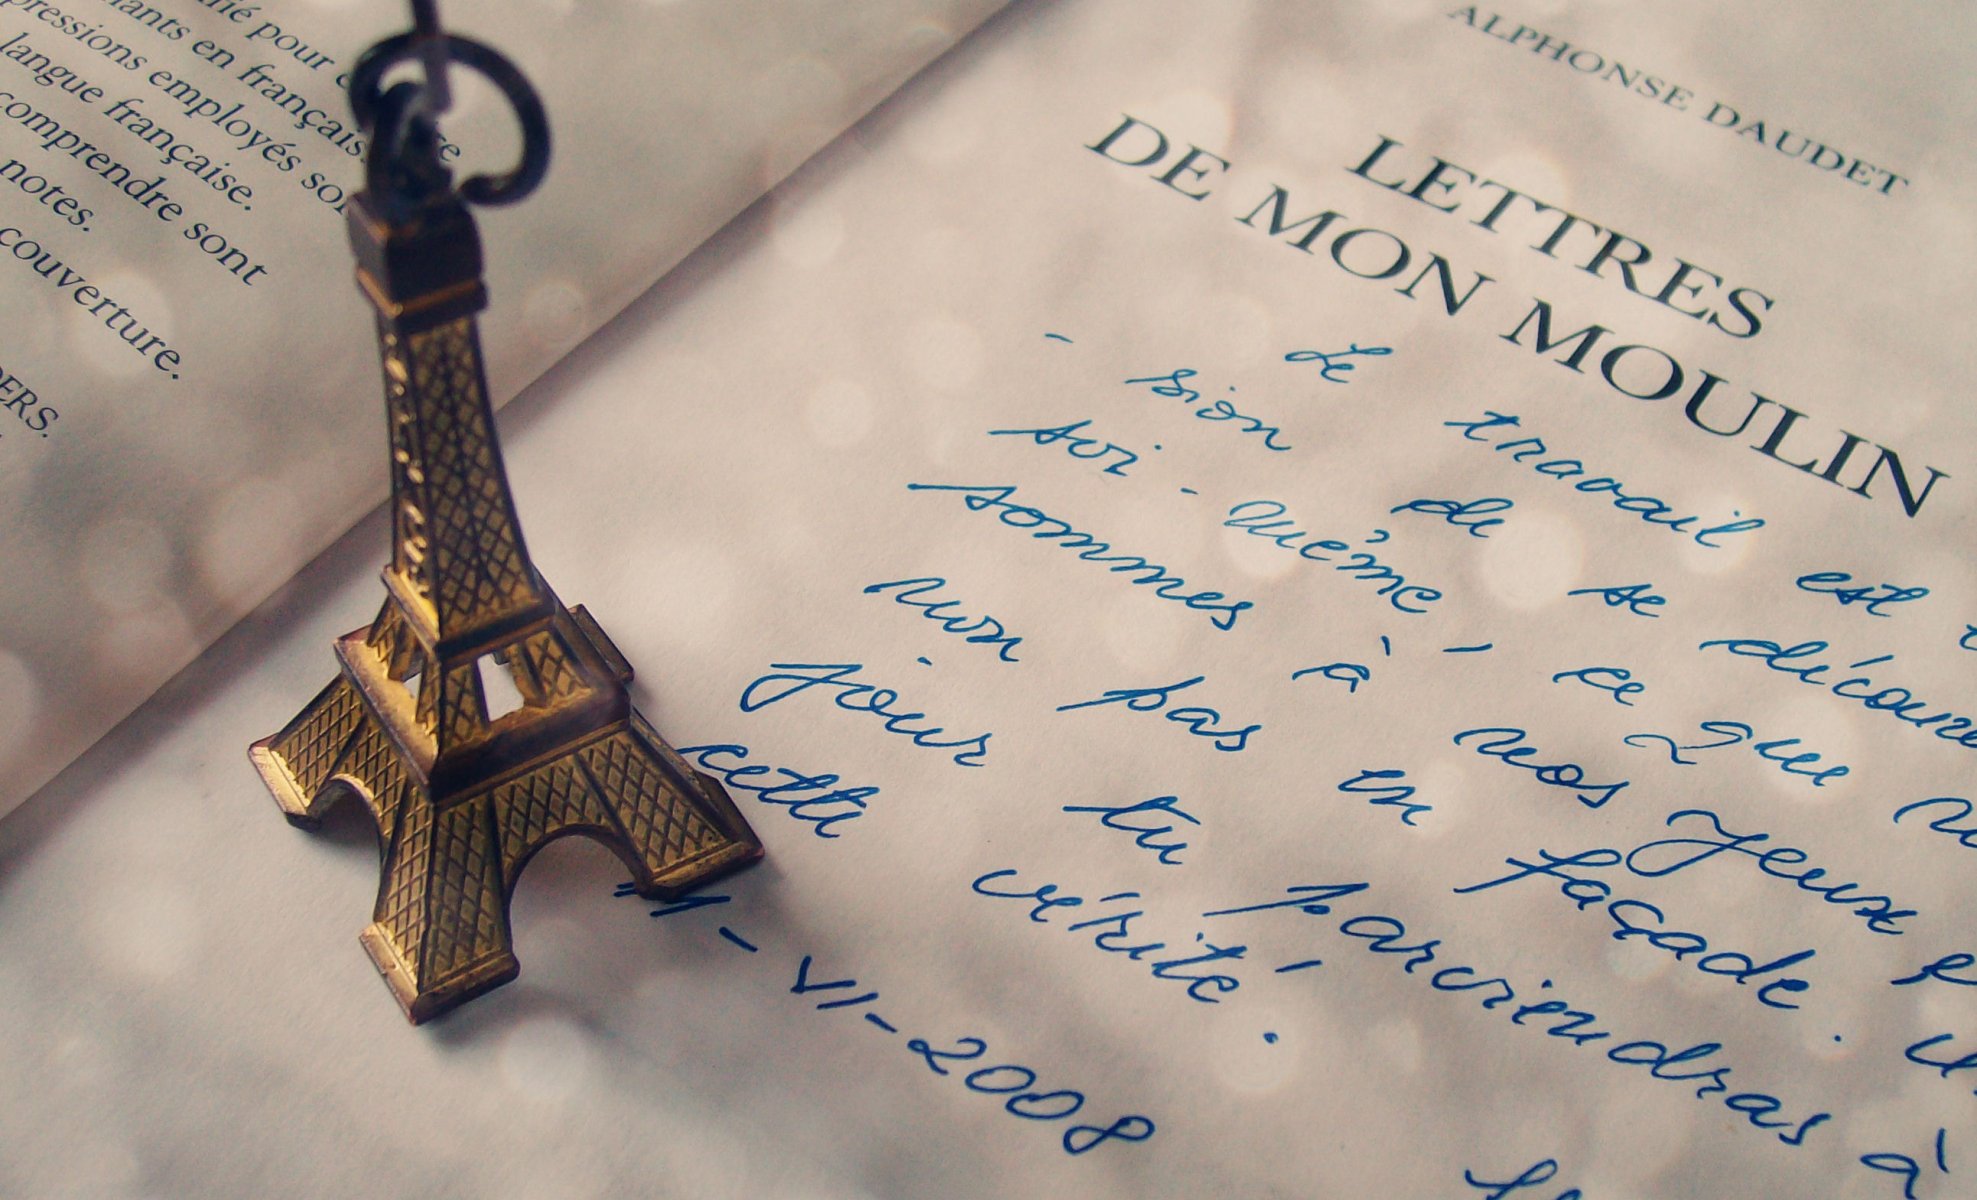 pour
en français.
employés
langue française.
comprendre sont
notes.
couverture.
ALPHONSE DAUDET
LETTRES
DE MON MOULIN
Le travail est
-sion de se
soi-même, ce que
sommes à nos yeux
non pas en façade.
jour tu parviendras à
cette vérité.
11-VI-2008